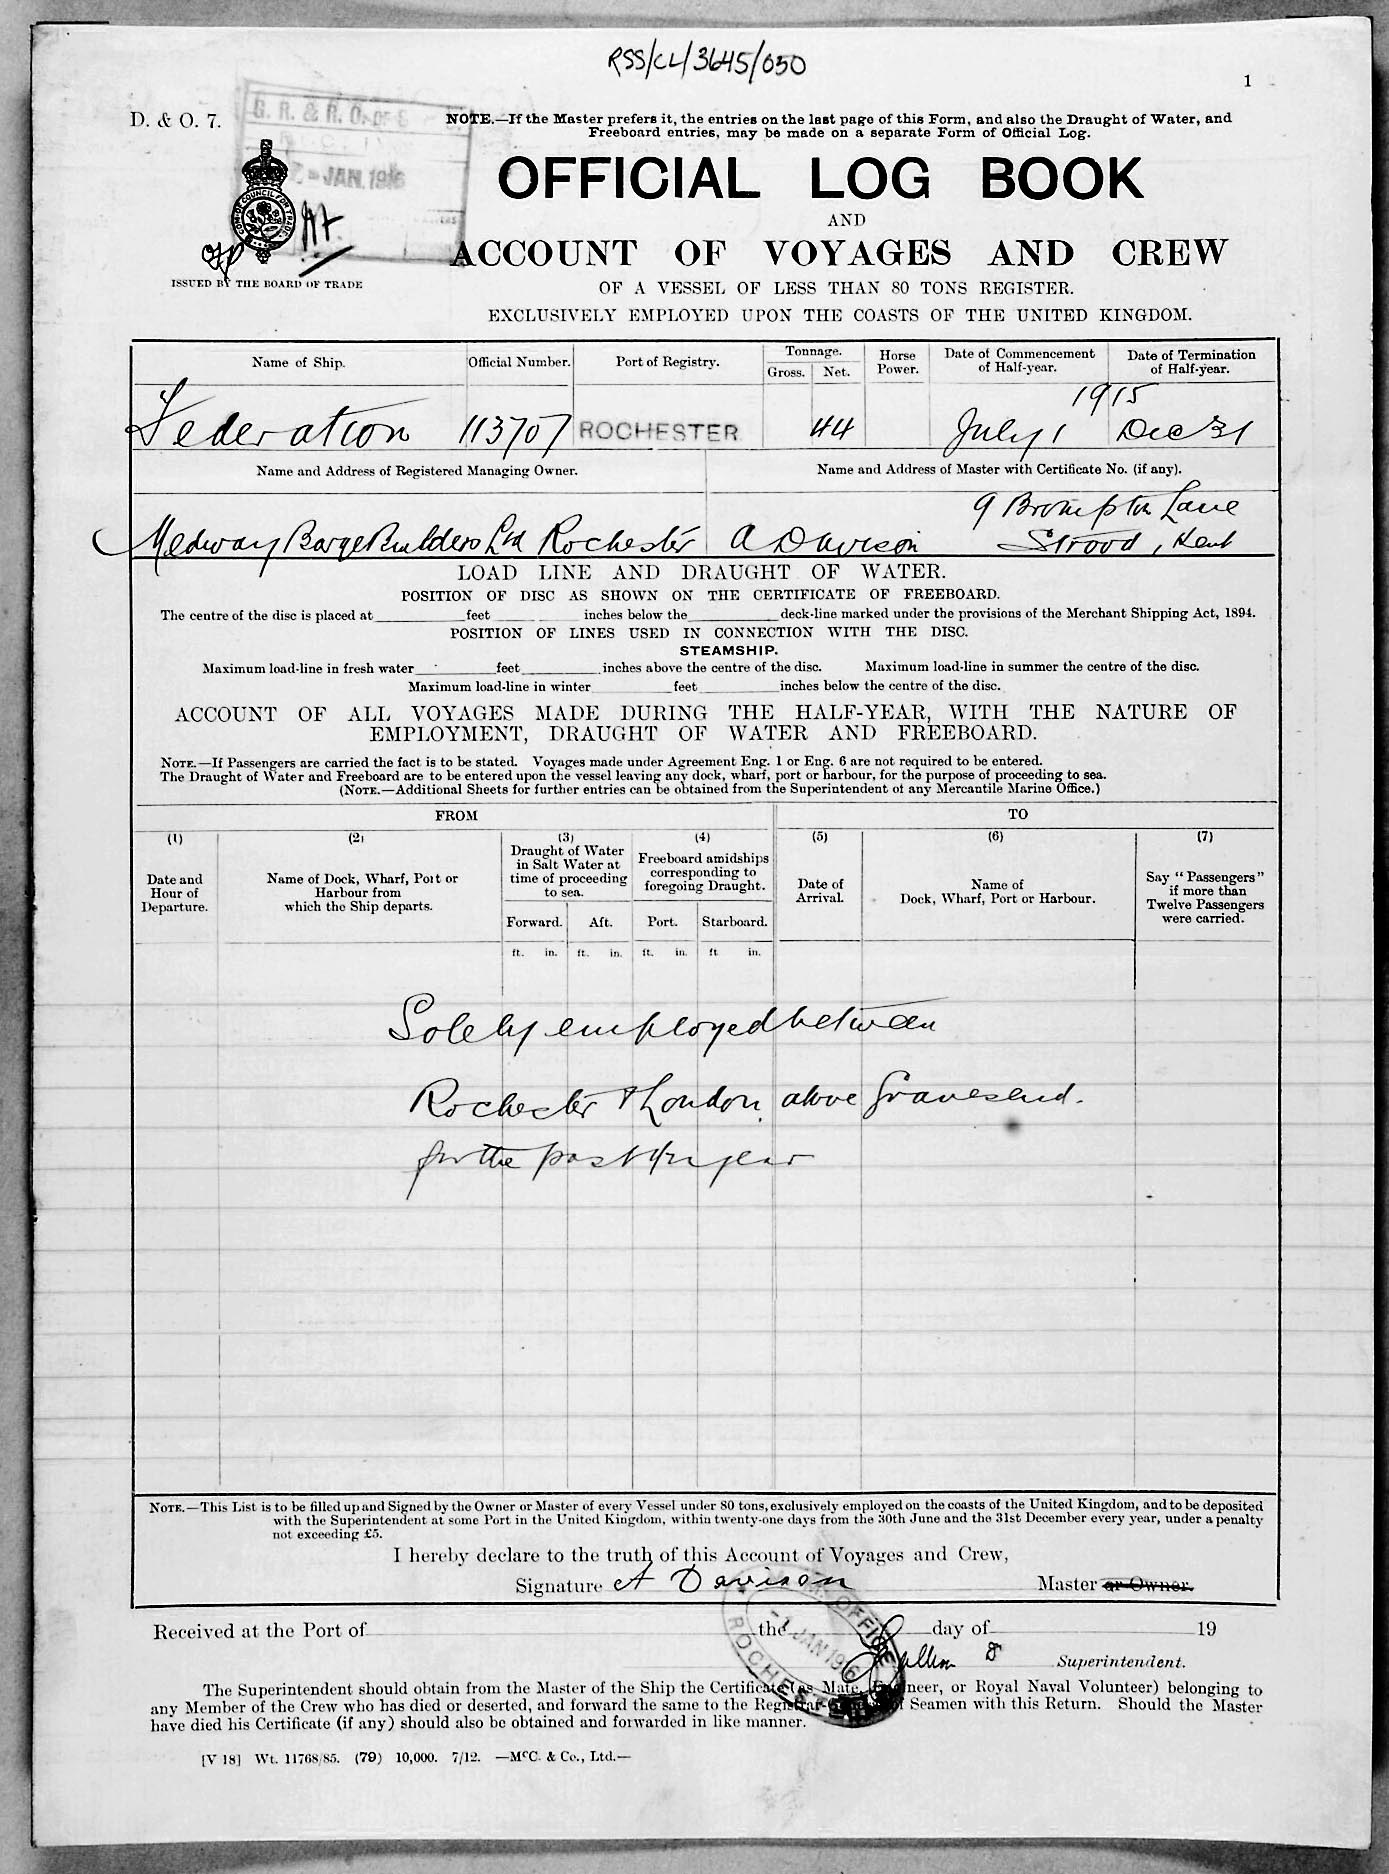 RSS/CL/3645/050
1
D. & O. 7.
G. R. & R. O. OF S
- JAN. 1916
NOTE.—If the Master prefers it, the entries on the last page of this Form, and also the Draught of Water, and
Freeboard entries, may be made on a separate Form of Official Log.
OFFICIAL LOG BOOK
AND
ACCOUNT OF VOYAGES AND CREW
ISSUED BY THE BOARD OF TRADE
OF A VESSEL OF LESS THAN 80 TONS REGISTER.
EXCLUSIVELY EMPLOYED UPON THE COASTS OF THE UNITED KINGDOM.
Name of Ship. Official Number. Port of Registry. Tonnage. Gross. Net. Horse Power. Date of Commencement of Half-year. Date of Termination of Half-year.
1915
Federation 113707 ROCHESTER 44 July 1 Dec 31
Name and Address of Registered Managing Owner. Name and Address of Master with Certificate No. (if any).
9 Brompton Lane
Medway Barge Builders Ltd Rochester A Davison Strood, Kent
LOAD LINE AND DRAUGHT OF WATER.
POSITION OF DISC AS SHOWN ON THE CERTIFICATE OF FREEBOARD.
The centre of the disc is placed at feet inches below the deck-line marked under the provisions of the Merchant Shipping Act, 1894.
POSITION OF LINES USED IN CONNECTION WITH THE DISC.
STEAMSHIP.
Maximum load-line in fresh water feet inches above the centre of the disc. Maximum load-line in summer the centre of the disc.
Maximum load-line in winter feet inches below the centre of the disc.
ACCOUNT OF ALL VOYAGES MADE DURING THE HALF-YEAR, WITH THE NATURE OF
EMPLOYMENT, DRAUGHT OF WATER AND FREEBOARD.
NOTE.—If Passengers are carried the fact is to be stated. Voyages made under Agreement Eng. 1 or Eng. 6 are not required to be entered.
The Draught of Water and Freeboard are to be entered upon the vessel leaving any dock, wharf, port or harbour, for the purpose of proceeding to sea.
(NOTE.—Additional Sheets for further entries can be obtained from the Superintendent of any Mercantile Marine Office.)
FROM TO
(1) (2) (3) (4) (5) (6) (7)
Date and Hour of Departure.
Name of Dock, Wharf, Port or Harbour from which the Ship departs.
Draught of Water in Salt Water at time of proceeding to sea.
Freeboard amidships corresponding to foregoing Draught.
Date of Arrival.
Name of Dock, Wharf, Port or Harbour.
Say "Passengers" if more than Twelve Passengers were carried.
Forward. Aft. Port. Starboard.
ft. in. ft. in. ft. in. ft in.
Solely employed between
Rochester & London above Gravesend.
for the past ½ year
NOTE.—This List is to be filled up and Signed by the Owner or Master of every Vessel under 80 tons, exclusively employed on the coasts of the United Kingdom, and to be deposited
with the Superintendent at some Port in the United Kingdom, within twenty-one days from the 30th June and the 31st December every year, under a penalty
not exceeding £5.
I hereby declare to the truth of this Account of Voyages and Crew,
Signature A Davison Master or Owner.
Received at the Port of the day of 19
Superintendent.
OFFICE
-1 JAN 1916
ROCHESTER
The Superintendent should obtain from the Master of the Ship the Certificate (as Mate, Engineer, or Royal Naval Volunteer) belonging to
any Member of the Crew who has died or deserted, and forward the same to the Registrar-General of Seamen with this Return. Should the Master
have died his Certificate (if any) should also be obtained and forwarded in like manner.
[V 18] Wt. 11768/85. (79) 10,000. 7/12. —McC. & Co., Ltd.—